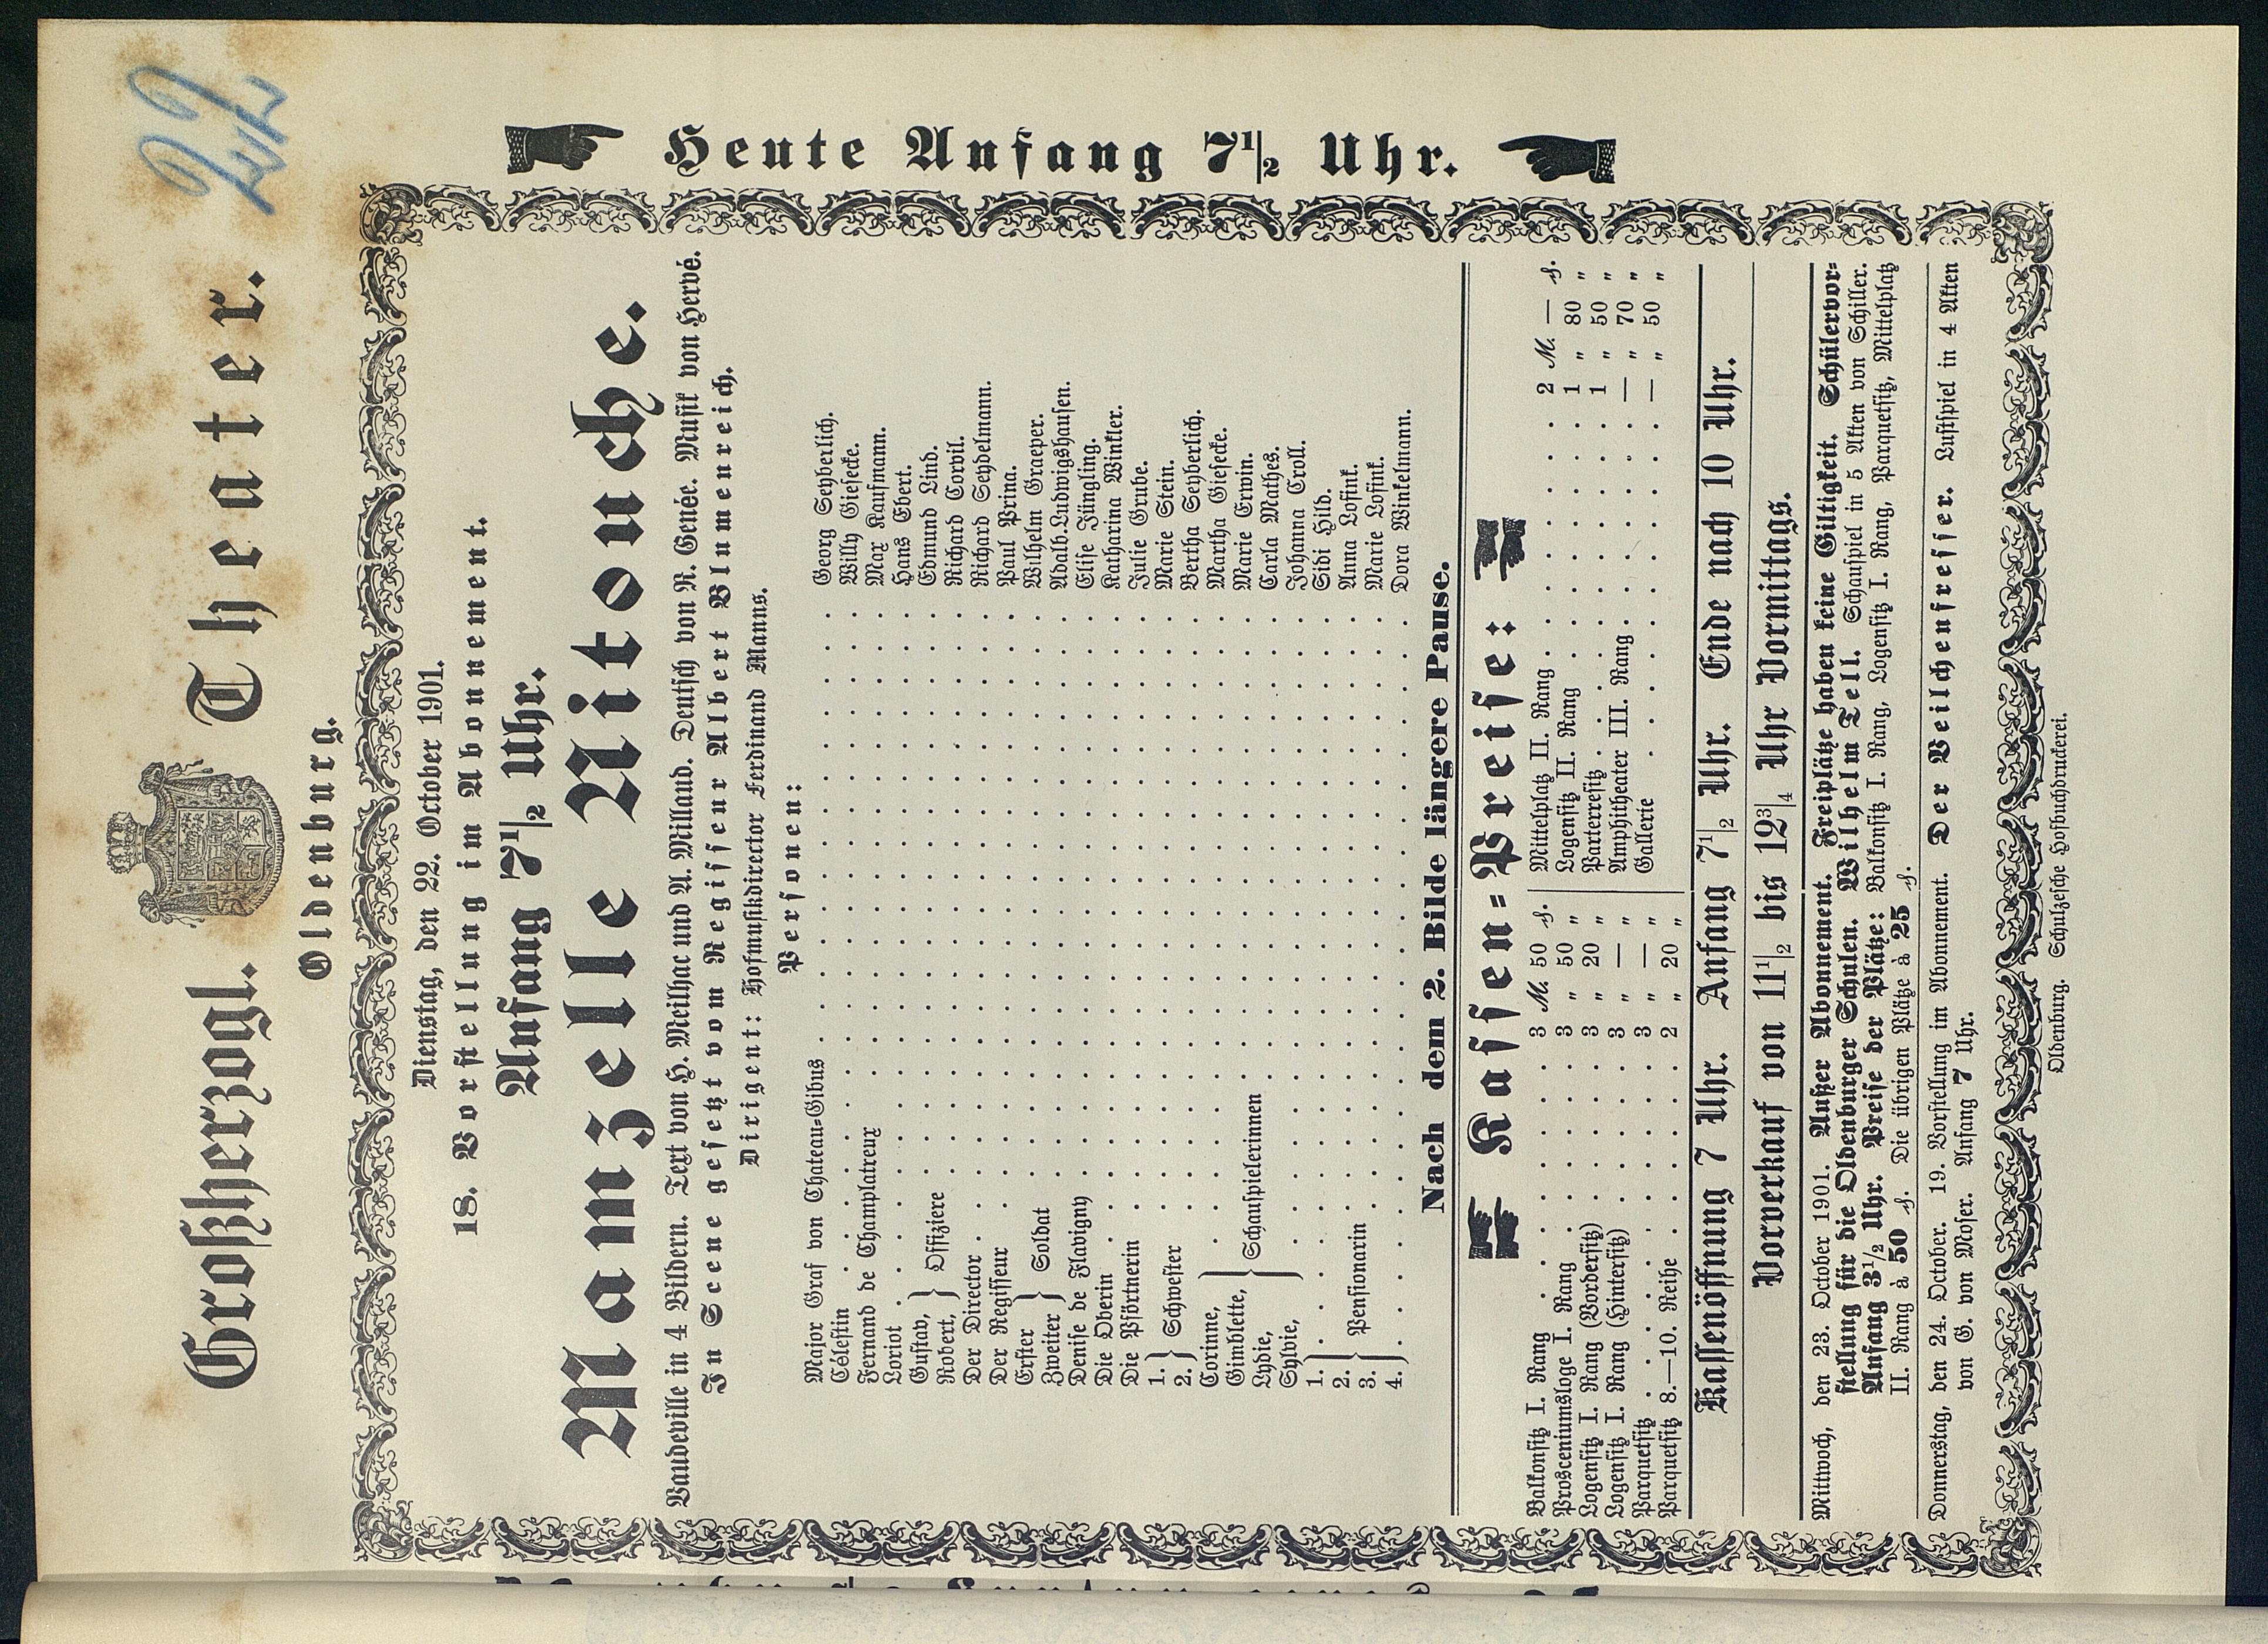 Großherzogl. Theater.
Oldenburg.
Dienstag, den 22. October 1901.
18. Vorstellung im Abonnement.
Anfang 7½ Uhr.
Mamzelle Nitouche.
Vaudeville in 4 Bildern. Text von H. Meilhac und A. Milland. Deutsch von R. Genée. Musik von Hervé.
In Scene gesetzt vom Regisseur Albert Blumenreich.
Dirigent: Hofmusikdirector Ferdinand Manns.
Personen:
Major Graf von Chateau-Gibus . . . Georg Seyberlich.
Célestin . . . Willy Giesecke.
Fernand de Champlatreux . . . Max Kaufmann.
Loriot . . . Hans Ebert.
Gustav, } Offiziere . . . Edmund Lind.
Robert, } . . . Richard Corvil.
Der Director . . . Richard Seydelmann.
Der Regisseur . . . Paul Prina.
Erster } Soldat . . . Wilhelm Graeper.
Zweiter } . . . Adalb. Ludwigshausen.
Denise de Flavigny . . . Elise Jüngling.
Die Oberin . . . Katharina Winkler.
Die Pförtnerin . . . Julie Grube.
1. } Schwester . . . Marie Stein.
2. } . . . Bertha Seyberlich.
Corinne, } . . . Martha Giesecke.
Gimblette, } Schauspielerinnen . . . Marie Erwin.
Lydie, } . . . Carla Mathes.
Sylvie, } . . . Johanna Croll.
1. } . . . Sidi Hild.
2. } Pensionarin . . . Anna Lofink.
3. } . . . Marie Lofink.
4. } . . . Dora Winkelmann.
Nach dem 2. Bilde längere Pause.
Kassen-Preise:
Balkonsitz I. Rang . . . 3 M. 50 ₰.
Prosceniumsloge I. Rang . . . 3 „ 50 „
Logensitz I. Rang (Vordersitz) . . . 3 „ 20 „
Logensitz I. Rang (Hintersitz) . . . 3 „ — „
Parquetsitz . . . 3 „ — „
Parquetsitz 8.—10. Reihe . . . 2 „ 20 „
Mittelplatz II. Rang . . . 2 M. — ₰.
Logensitz II. Rang . . . 1 „ 80 „
Parterresitz . . . 1 „ 50 „
Amphitheater III. Rang . . . — „ 70 „
Gallerie . . . — „ 50 „
Kassenöffnung 7 Uhr. Anfang 7½ Uhr. Ende nach 10 Uhr.
Vorverkauf von 11½ bis 12¾ Uhr Vormittags.
Mittwoch, den 23. October 1901. Außer Abonnement. Freiplätze haben keine Giltigkeit. Schülervor-
stellung für die Oldenburger Schulen. Wilhelm Tell. Schauspiel in 5 Akten von Schiller.
Anfang 3½ Uhr. Preise der Plätze: Balkonsitz I. Rang, Logensitz I. Rang, Parquetsitz, Mittelplatz
II. Rang à 50 ₰. Die übrigen Plätze à 25 ₰.
Donnerstag, den 24. October. 19. Vorstellung im Abonnement. Der Veilchenfresser. Lustspiel in 4 Akten
von G. von Moser. Anfang 7 Uhr.
Oldenburg. Schulzesche Hofbuchdruckerei.
Heute Anfang 7½ Uhr.
22